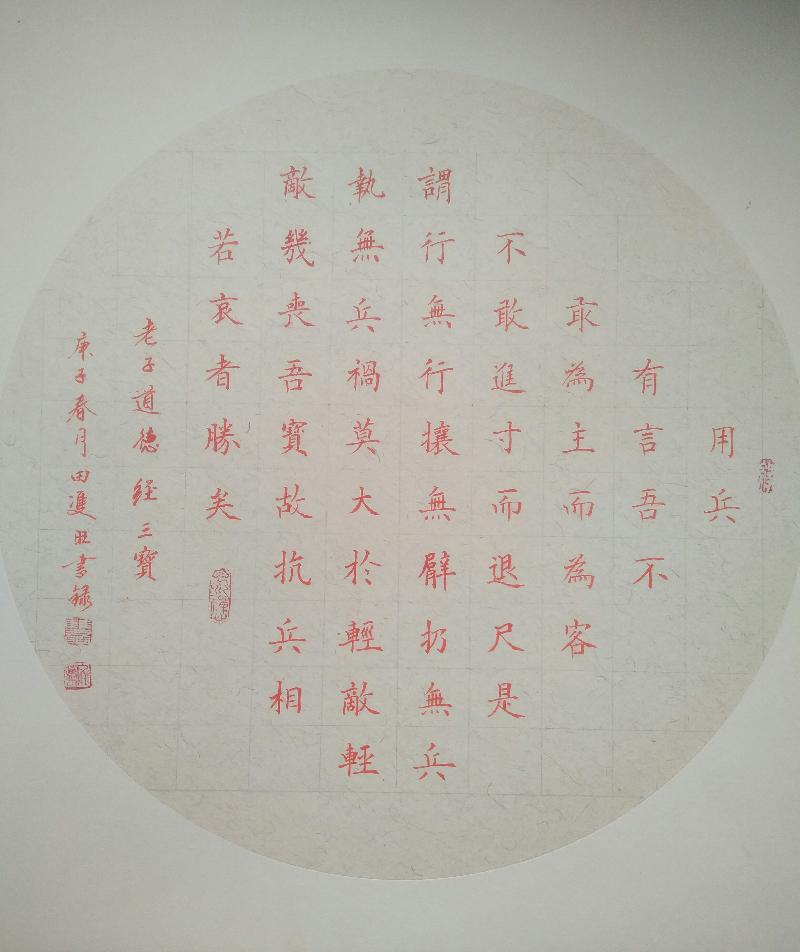 用兵
有言吾不
敢為主而為客
不敢進寸而退尺是
謂行無行攘無臂扔無兵
執無兵禍莫大於輕敵輕
敵幾喪吾寶故抗兵相
若哀者勝矣
老子道德经三寶
庚子春月田双旺書録